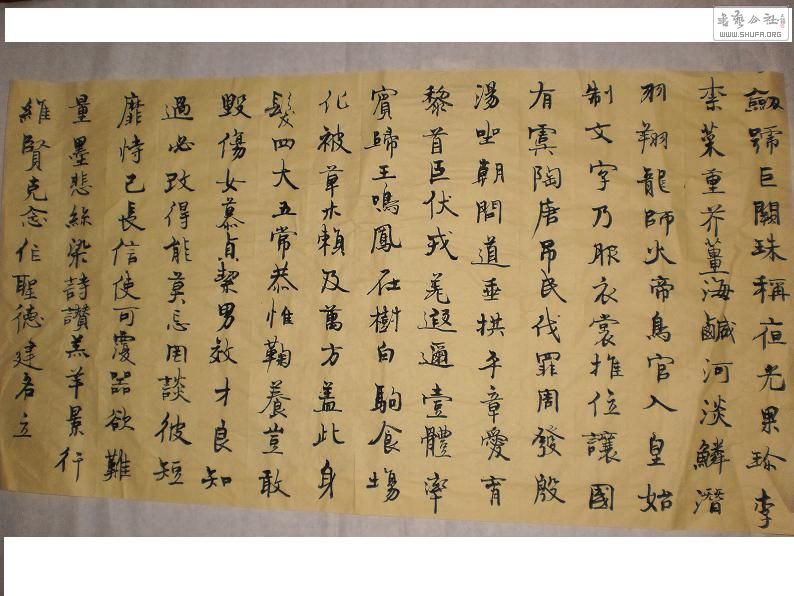 劍號巨闕珠稱夜光果珍李
柰菜重芥薑海鹹河淡鱗潛
羽翔龍師火帝鳥官人皇始
制文字乃服衣裳推位讓國
有虞陶唐吊民伐罪周發殷
湯坐朝問道垂拱平章愛育
黎首臣伏戎羌遐邇壹體率
賓歸王鳴鳳在樹白駒食場
化被草木賴及萬方蓋此身
髮四大五常恭惟鞠養豈敢
毀傷女慕貞絜男效才良知
過必改得能莫忘罔談彼短
靡恃己長信使可覆器欲難
量墨悲絲染詩讚羔羊景行
維賢克念作聖德建名立
書藝公社
WWW.SHUFA.ORG